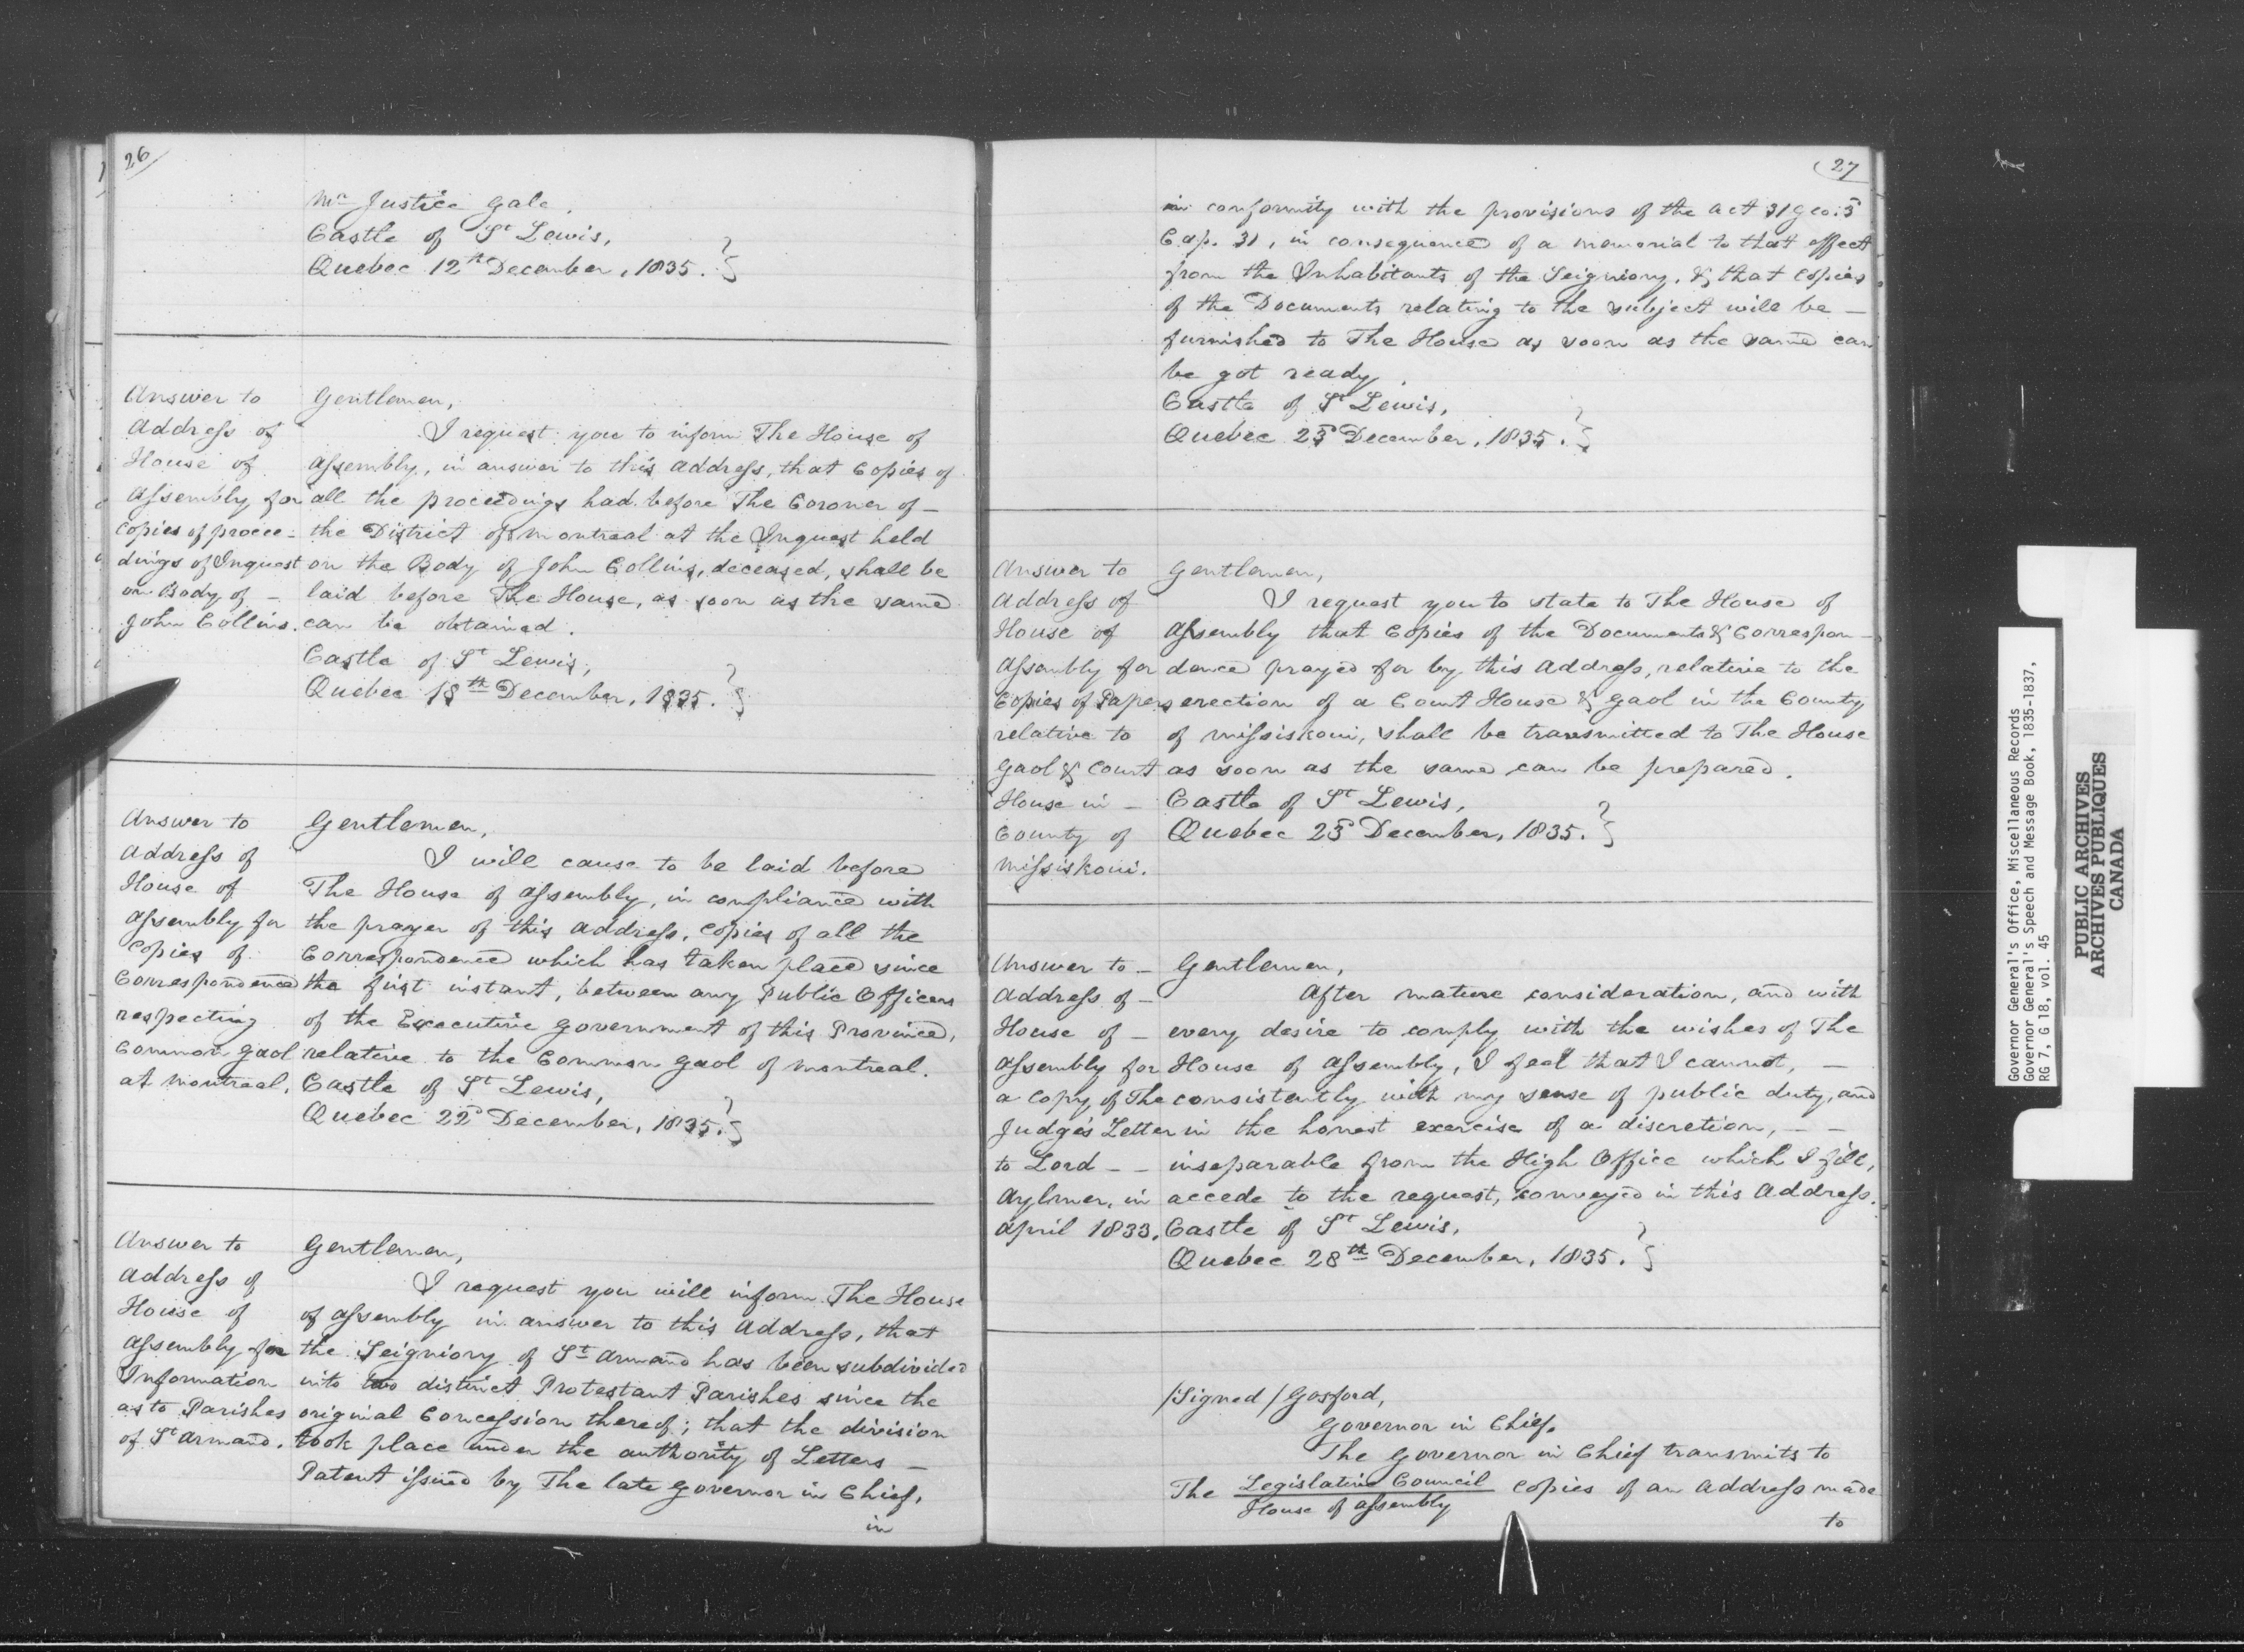 26
Mr Justice Gale.
Castle of St Lewis,
Quebec 12th December, 1835.
Answer to
Address of
House of
Assembly for
Copies of procee-
dings of Inquest
on Body of -
John Collins.
Gentlemen,
I request you to inform The House of
Assembly, in answer to this Address, that Copies of
all the proceedings had before The Coroner of -
the District of Montreal at the Inquest held
on the Body of John Collins, deceased, shall be
laid before The House, as soon as the same
can be obtained.
Castle of St Lewis,
Quebec 18th December, 1835.
Answer to
Address of
House of
Assembly for
Copies of
Correspondence
respecting
Common Gaol
at Montreal.
Gentlemen,
I will cause to be laid before
The House of Assembly, in compliance with
the prayer of this Address, Copies of all the
Correspondence which has taken place since
the first instant, between any Public Officers
of the Executive Government of this Province,
relative to the Common Gaol of Montreal.
Castle of St Lewis,
Quebec 22d December, 1835.
Answer to
Address of
House of
Assembly for
Information
as to Parishes
of St Armand.
Gentlemen,
I request you will inform The House
of Assembly in answer to this Address, that
the Seigniory of St Armand has been subdivided
into two distinct Protestant Parishes since the
original Concession thereof; that the division
took place under the authority of Letters -
Patent issued by The late Governor in Chief,
in
27
in conformity with the provisions of the Act 31 Geo: 3
Cap. 31, in consequence of a memorial to that effect
from the Inhabitants of the Seigniory, & that Copies
of the Documents relating to the subject will be -
furnished to The House as soon as the same can
be got ready.
Castle of St Lewis,
Quebec 23d December, 1835.
Answer to
Address of
House of
Assembly for
Copies of Papers
relative to
Gaol & Court
House in -
County of
Missiskoui.
Gentlemen,
I request you to state to The House of
Assembly that Copies of the Documents & Correspon-
dence prayed for by this Address, relative to the
erection of a Court House & Gaol in the County
of Missiskoui, shall be transmitted to The House
as soon as the same can be prepared.
Castle of St Lewis,
Quebec 23d December, 1835.
Answer to -
Address of -
House of -
Assembly for
a Copy of The
Judge's Letter
to Lord - -
Aylmer, in
April 1833.
Gentlemen,
After mature consideration, and with
every desire to comply with the wishes of The
House of Assembly, I feel that I cannot, -
consistently with my sense of public duty, and
in the honest exercise of a discretion, - -
inseparable from the High Office which I fill,
accede to the request, conveyed in this Address.
Castle of St Lewis,
Quebec 28th December, 1835.
/Signed/ Gosford,
Governor in Chief.
The Governor in Chief transmits to
The Legislative Council copies of an Address made
House of Assembly
to
Governor General's Office, Miscellaneous Records
Governor General's Speech and Message Book, 1835-1837,
RG 7, G 18, vol. 45
PUBLIC ARCHIVES
ARCHIVES PUBLIQUES
CANADA